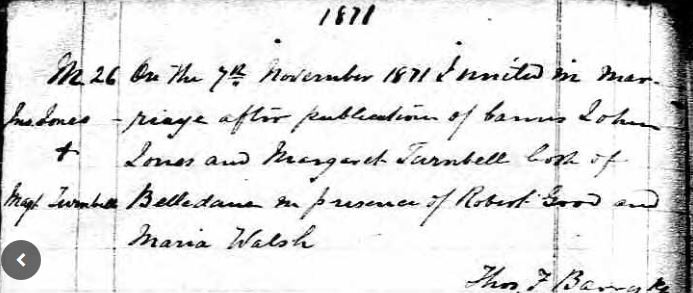 1871
M 26 On the 7th November 1871 I united in mar-
Jno Jones - riage after publication of banns John
+ Jones and Margaret Turnbell both of
Magt Turnbell Belledune in presence of Robert Good and
Maria Walsh
Thos. F Barry